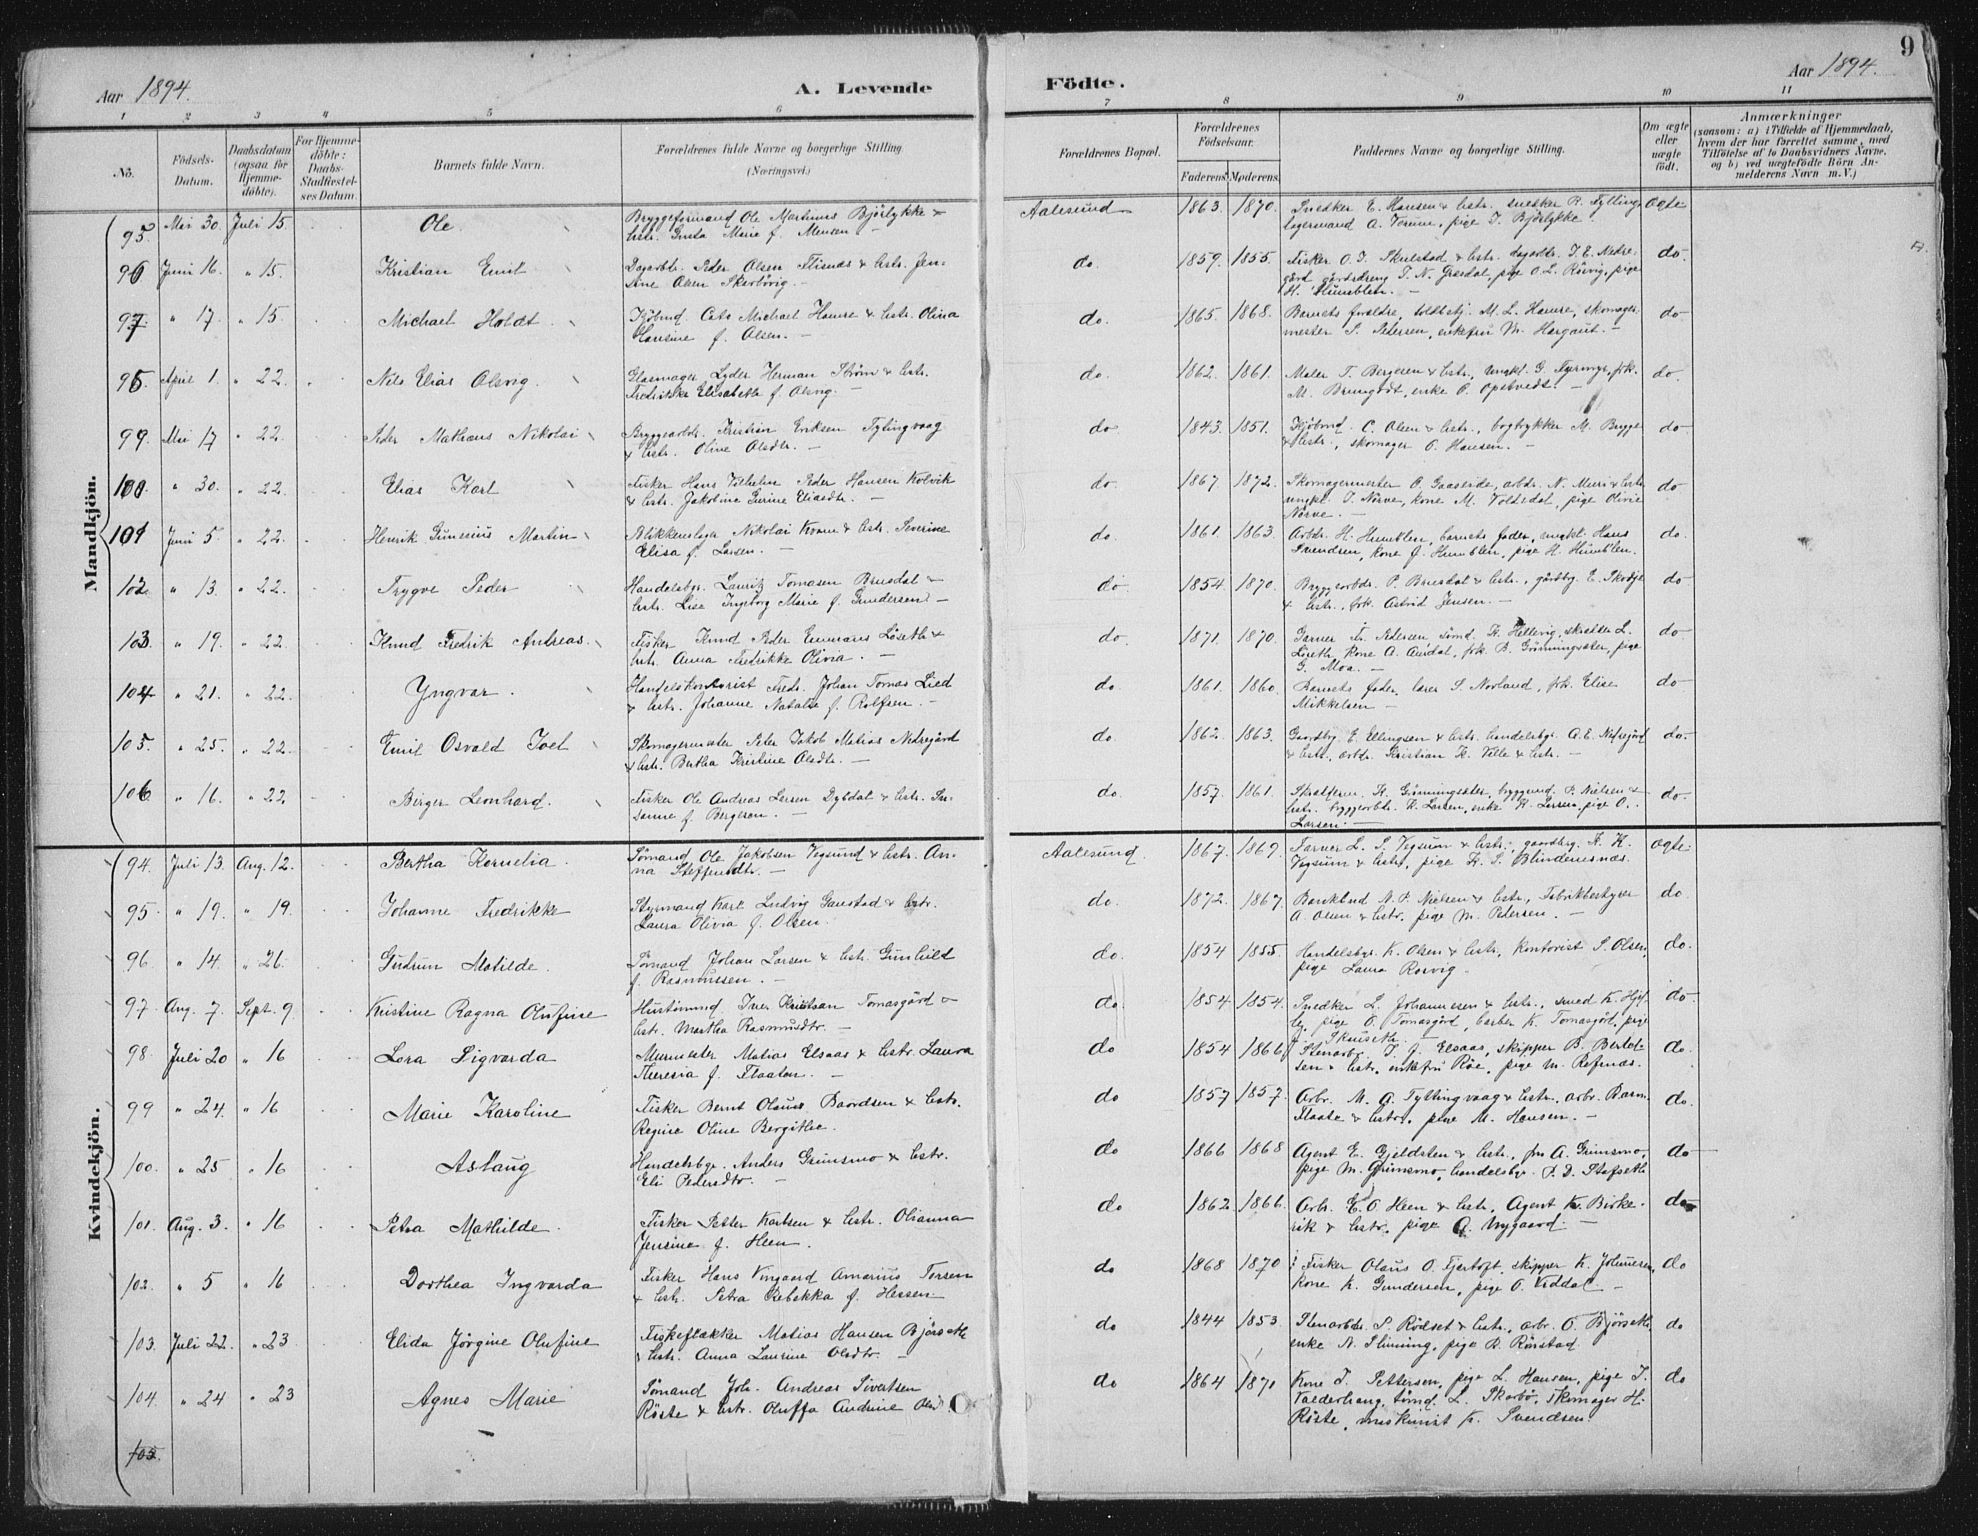 9
Aar 1894.
A. Levende
Födte.
Aar 1894.
1 2 3 4 5 6 7 8 9 10 11
No.
Födsels-Datum.
Daabsdatum (ogsaa for Hjemme-döbte).
For Hjemme-döbte: Daabs-Stadfæstel-ses Datum.
Barnets fulde Navn.
Forældrenes fulde Navne og borgerlige Stilling (Næringsvei.)
Forældrenes Bopæl.
Forældrenes Födselsaar.
Faderens. Moderens.
Faddernes Navne og borgerlige Stilling.
Om ægte eller uægte födt.
Anmærkninger
(saasom: a) i Tilfælde af Hjemmedaab, hvem der har forrettet samme, med Tilföielse af to Daabsvidners Navne, og b) ved uægtefödte Börn An-melderens Navn m. V.)
Mandkjön.
95. Mai 30. Juli 15. Ole. Bryggeformand Ole Martinus Bjørlykke & hstr. Marie f. Aalesund 1863. 1870. Snedker E. Hansen & hstr. snedker R. Fylling, pige J. Bjørlykke ægte
96 Juni 16. " 15. Kristian Emil Dagarb. Peder Olsen Flisnæs & hstr. Jen-sine Olsen do. 1859. 1855. Fisker O. J. & hstr. dagarb. J. E. Nedre-gård pige O. L. Rösvig, pige H. Humblen. do.
97. " 17 " 15. Michael Holdt. Kjöbmd. Michael Hamre & hstr. Olina Hansine f. Olsen. do. 1865. 1868. Barnets forældre, M. L. Hamre, skomager-mester S. Petersen, enkefru M. Hargaut. do
98. April 1. " 22. Nils Elias Olsvig. Glasmager Lyder Herman Strøm & hstr. Fredrikke Elisabeth f. Olsvig. do. 1862. 1861. Maler T. Bergesen & hstr., ungkl. G. frk. M. Brungodt, enke O. Opstvedt. do.
99. Mai 17 " 22. Peder Mathæus Nikolai Bryggearbdr. Kristian Eriksen Fylingvaag & hstr. Olive Olsdtr. do 1843. 1851. Kjöbmd. C. Olsen & hstr., bogtrykker M. Brygge & hstr., skomager O. Hansen. do.
100. " 30. " 22. Elias Karl Fisker Hans Vilhelm Peder Hansen Kolvik & hstr. Jakobine Gurine Eliasdtr. do. 1867 1872. Skomagermester O. Gaaseide, arbdr. N. Muri & hstr. ungkl. J. Nörve, kone M. Voldsdal, pige Olivie Nörve. do
101 Juni 5. " 22. Henrik Gunerius Martin Blikkenslager Nikolai & hstr. Severine Elisa f. Larsen. do. 1861. 1863. Arbdr. H. Humblen, barnets fader, ungkl. Hans Svendsen, kone J. Humblen, pige H. Humblen. do.
102. " 13. " 22. Trygve Peder Handelsbgr. Lauritz Tomasen Brusdal & hstr. Lise Ingeborg Marie f. Gundersen do 1854 1870. Bryggearbdr. P. Brusdal & hstr., gårdbg. E. Skodje & hstr., frk. Astrid Jensen. do
103. " 19. " 22. Knud Fredrik Andreas. Fisker Knud Peder Emmaus Löseth & hstr. Anna Fredrikke Olivia. do. 1871. 1870. Garver Fr. Pedersen sömd. K. Hellevig, L. Löseth, kone A. frk. B. Grönningsæter, pige G. Moa. do
104 " 21. " 22. Yngvar. Handelskontorist Fredr. Johan Tomas Lied & hstr. Johanne Natalie f. Rolfsen. do 1861. 1860. Barnets fader, lærer S. Norland, frk. Elise Mikkelsen do
105. " 25. " 22. Emil Osvald Joel Skomagermester Peter Jakob Matias Nedregård & hstr. Bertha Kristine Olsdtr. do. 1862. 1863. Gaardbg. E. Ellingsen & hstr. handelsbgr. A. E. Nedregård & hstr., arbdr. Kristian K. Ville & hstr. do.
106 " 16. " 22 Birger Leonhard. Fisker Ole Andreas Larsen & hstr. Su-sanne f. Bergesen. do. 1857. 1861. K. Grönningsæter, bryggmd. P. Nielsen & hstr. bryggearbdr. K. Larsen, enke K. Larsen, pige O. Larsen. do.
Kvindekjön.
94. Juli 13 Aug. 12. Bertha Kornelia. Sömand Ole Jakobsen Vegsund & hstr. An-na Steffensdtr. Aalesund. 1867. 1869. Farver L. S. Vegsum & hstr., gaardbg. K. K. Vegsum & hstr., pige K. S. Blindenesnæs. ægte
95. " 19. " 19. Johanne Fredrikke Styrmand Karl Ludvig Gaustad & hstr. Laura Olivia f. Olsen. do. 1872. 1867. N. P. Nielsen & hstr., Fabrikbestyrer A. Olsen & hstr. pige M. Petersen. do.
96. " 14. " 26. Gudrun Matilde. Sömand Johan Larsen & hstr. Gunhild f. Rasmussen. do. 1854 1855. Handelsbgr. K. Olsen & hstr., kontorist S. Olsen, pige Laura Rosvig. do.
97. Aug. 7 Sept. 9. Kristine Ragna Olufine Iver Kristian Tomasgård & hstr. Martha Rasmusdtr. do. 1854 1854. Snedker L. Johannesen & hstr., smed K. pige O. Tomasgård, barber K. Tomasgård, pige do.
98. Juli 20 " 16 Lora Sigvarda Murmester Matias Elsaas & hstr. Laura Theresia f. Flaaten. do 1854 1866 Stenarb. J. J. Elsaas, skipper B. Bertel-sen & hstr., enkefru Röe, pige M. Refsnæs. do.
99 " 24. " 16 Marie Karoline Fisker Bernt Olaus Baardsen & hstr. Regine Oline Bergithe. do 1857 1857. Arbr. M. A. Fyllingvaag & hstr., arbr. & hstr., pige M. Hansen. do.
100. " 25 " 16 Aslaug Handelsbgr. Anders Grimsmo & hstr. Eli Pedersdtr. do 1866 1868 Agent E. Gjeldsten & hstr., fru A. Grimsmo, pige M. Grimsmo, handelsbgr. P. D. Stafseth do
101. Aug. 3. " 16 Petra Mathilde. Fisker Petter Karlsen & hstr. Olianna Jensine f. Heen. do 1862 1866. Arbr. E. O. Heen & hstr. Agent K. Birke-rik & hstr., pige A. Nygaard. do
102. " 5 " 16 Dorthea Ingvarda Fisker Hans Vingaard Amarius Torsen & hstr. Petra Rebekka f. Hessen. do 1868 1870 Fisker Olaus O. Fjørtoft, skipper K. kone K. Gundersen, pige O. Viddal. do
103. Juli 22. " 23 Elida Jörgine Olufine Matias Hansen Bjørseth & hstr. Anna Laurine Olsdtr. do 1844 1853. Stenarbdr. P. Rödset & hstr., arbr. O. Bjørseth, enke N. pige B. Rönstad. do
104. " 24 " 23 Agnes Marie Sömand Joh. Andreas Sivertsen Röste & hstr. Oluffa Andrine do 1864 1871 Kone J. Pettersen, pige L. Hansen, pige J. Valderhaug, sömd. L. Skarbö, skomager H. Röste, maskinist K. Svendsen. do
105.